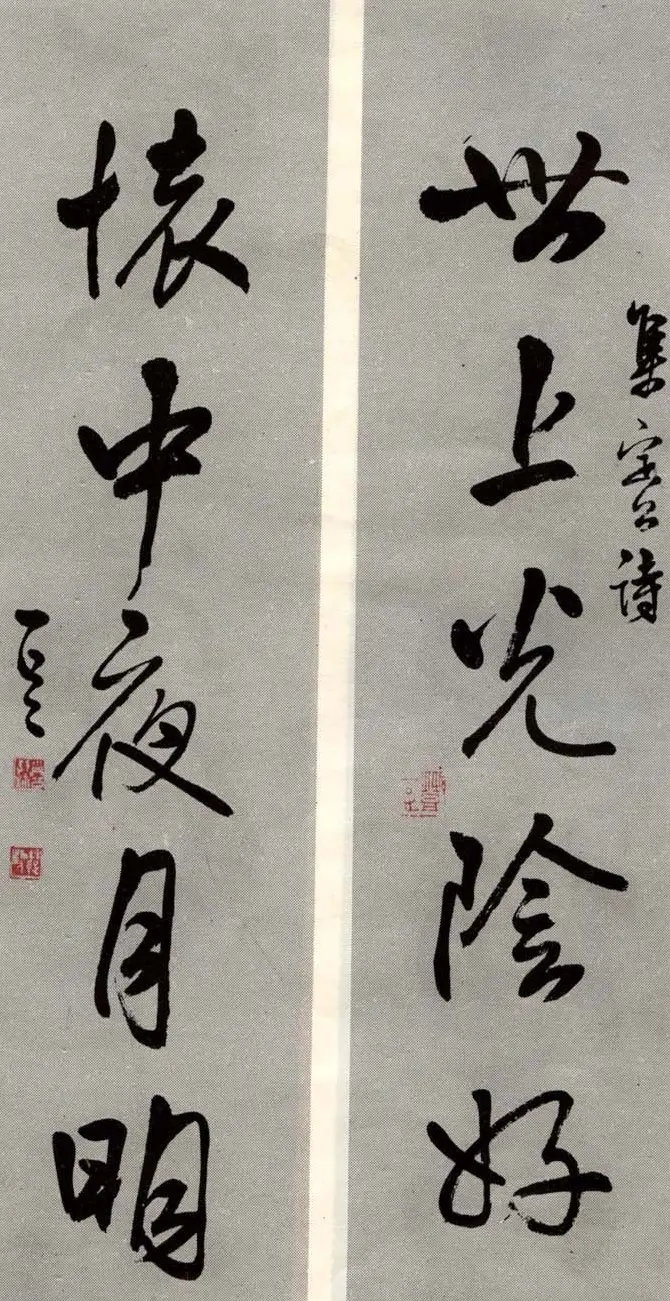 世上光陰好
集 詩
懷中夜月明